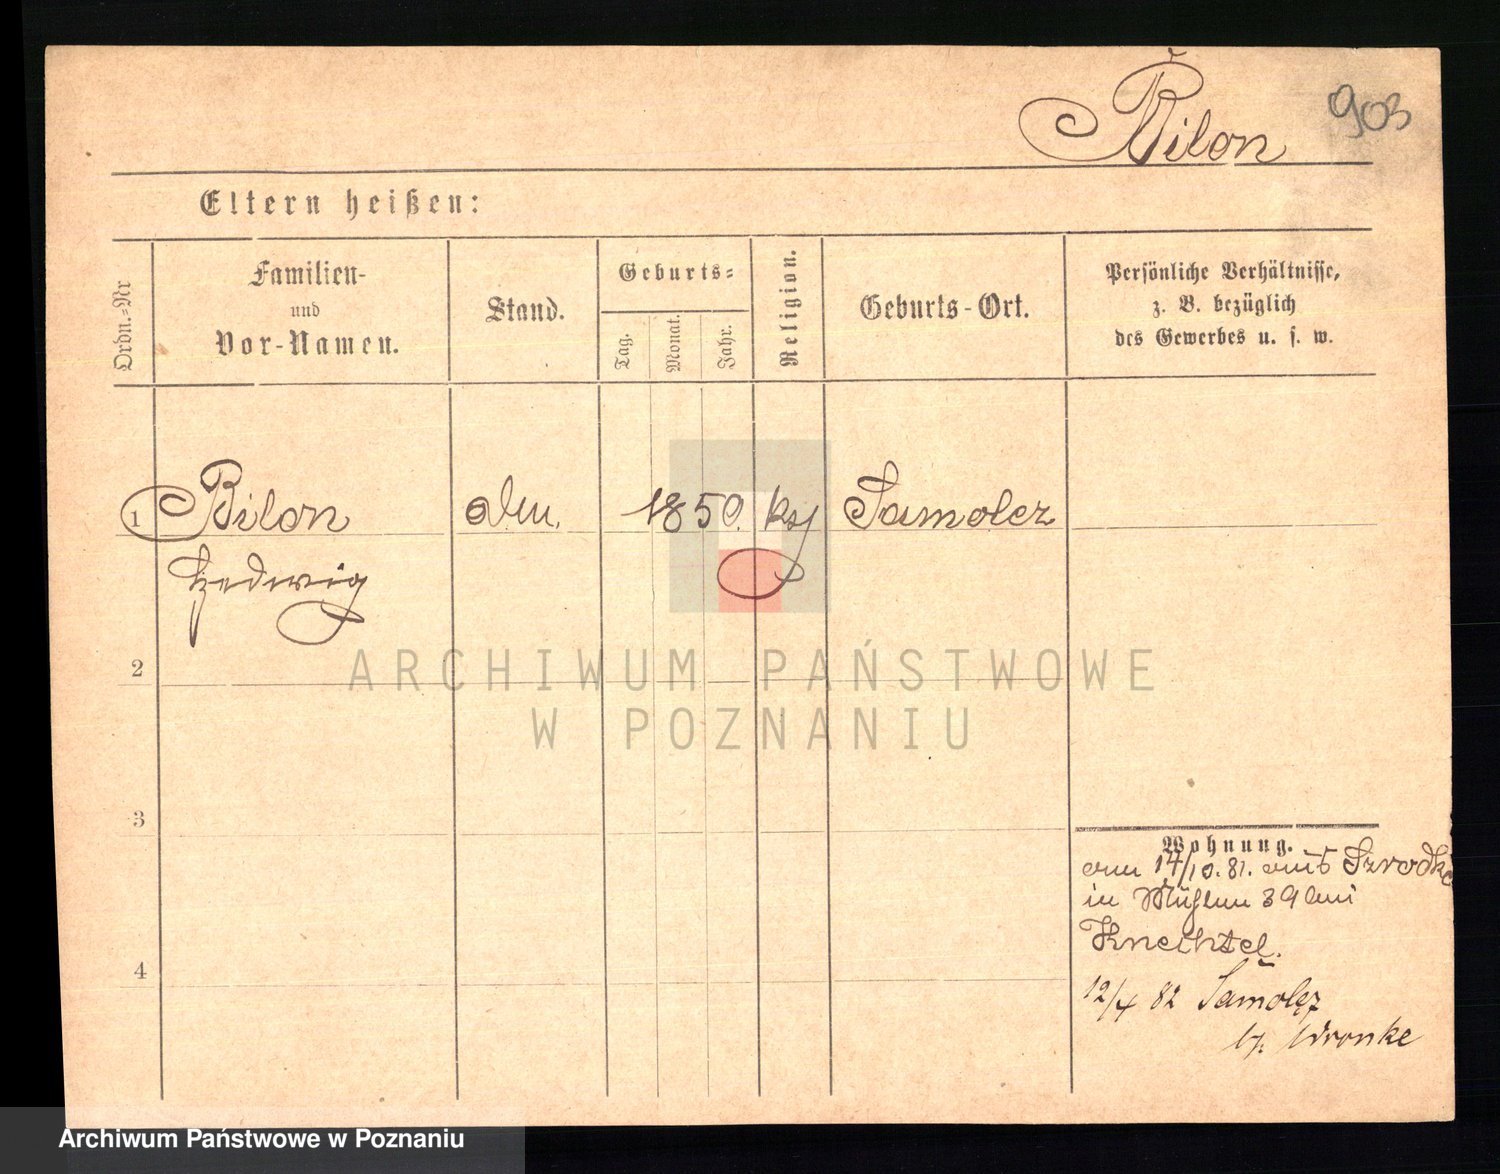 903
Bilon
Eltern heißen:
Ordn.-Nr
Familien-
und
Vor-Namen.
Stand.
Geburts-
Tag.
Monat.
Jahr.
Religion.
Geburts-Ort.
Persönliche Verhältnisse,
z. B. bezüglich
des Gewerbes u. s. w.
1 Bilon 1850. Samolez
Hedwig
2
3
4
Wohnung.
am 14/10. 81. aus Szrodka
in Mühlen 39 bei
Knechtel.
12/4 82 Samolęz
b/. Wronke
ARCHIWUM PAŃSTWOWE
W POZNANIU
Archiwum Państwowe w Poznaniu